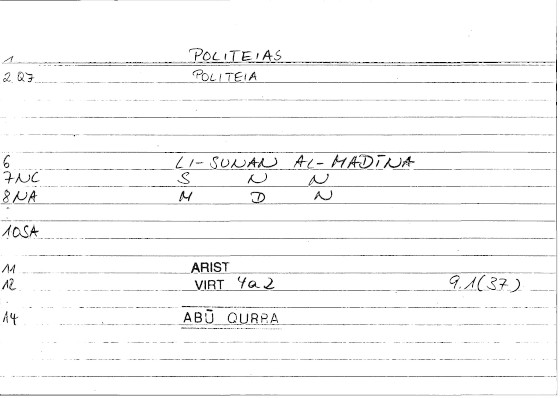 1 POLITEIAS
2 Q7 POLITEIA
6 LI-SUNAN AL-MADĪNA
7NC S N N
8NA M D N
10SA
11 ARIST
12 VIRT 4a2 9.1(37)
14 ABŪ QURRA